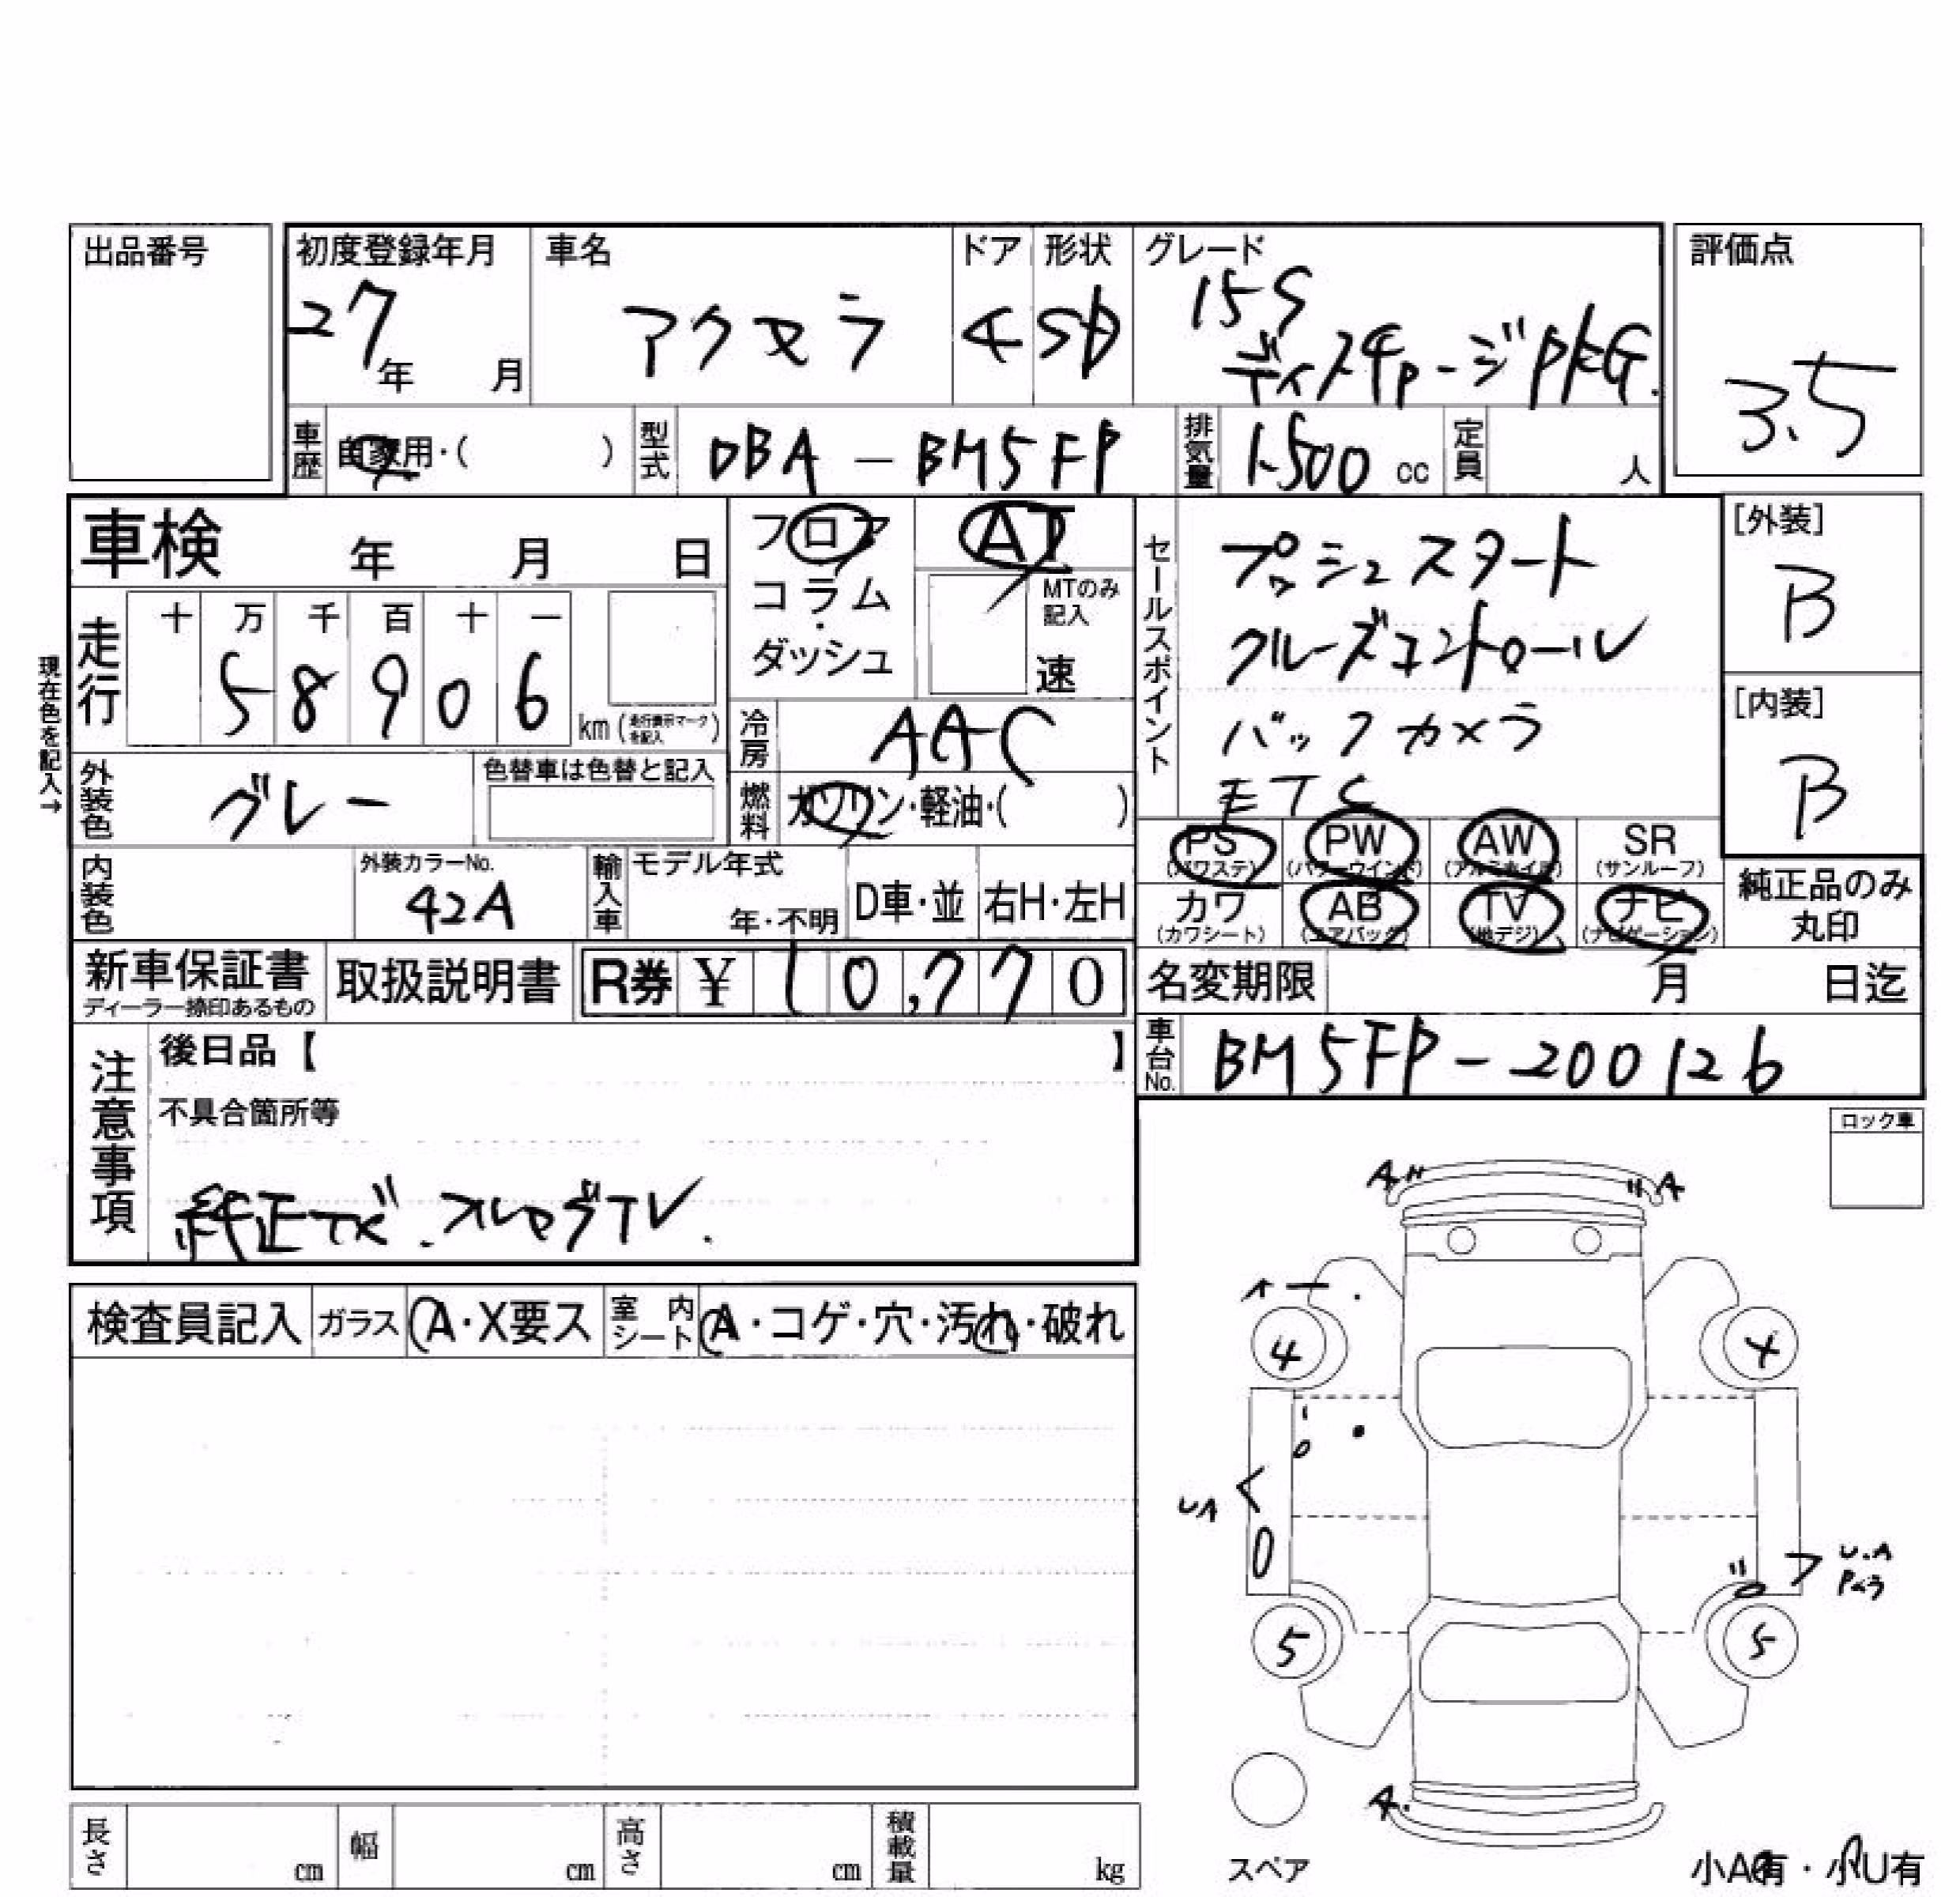 出品番号
初度登録年月 27年 月
車名 アクセラ
ドア 4
形状 SD
グレード 15S
ディスチャージPKG.
評価点 3.5
車歴 自家用・( )
型式 DBA-BM5FP
排気量 1500 cc
定員 人
車検 年 月 日
フロア
コラム
・
ダッシュ
AT
MTのみ
記入
速
セールスポイント
プッシュスタート
クルーズコントロール
バックカメラ
ETC
[外装]
B
[内装]
B
現在色を記入→
走行 十 万 千 百 十 一
5 8 9 0 6 km (走行表示マークを記入)
冷房 AAC
外装色 グレー
色替車は色替と記入
燃料 ガソリン・軽油・( )
PS (パワステ) PW (パワーウインド) AW (アルミホイル) SR (サンルーフ)
カワ (カワシート) AB (エアバッグ) TV (地デジ) ナビ (ナビゲーション)
純正品のみ
丸印
内装色
外装カラーNo.
42A
輸入車 モデル年式
年・不明
D車・並 右H・左H
新車保証書
ディーラー捺印あるもの
取扱説明書
R券 ¥ 10,770
名変期限 月 日迄
車台No. BM5FP-200126
注意事項
後日品【 】
不具合箇所等
純正ナビ.フルセグTV.
ロック車
検査員記入 ガラス A・X要ス 室内シート A・コゲ・穴・汚れ・破れ
A A
A
4 4
UA
U.A
5 5
A.
スペア
長さ cm 幅 cm 高さ cm 積載量 kg
小A有・小U有